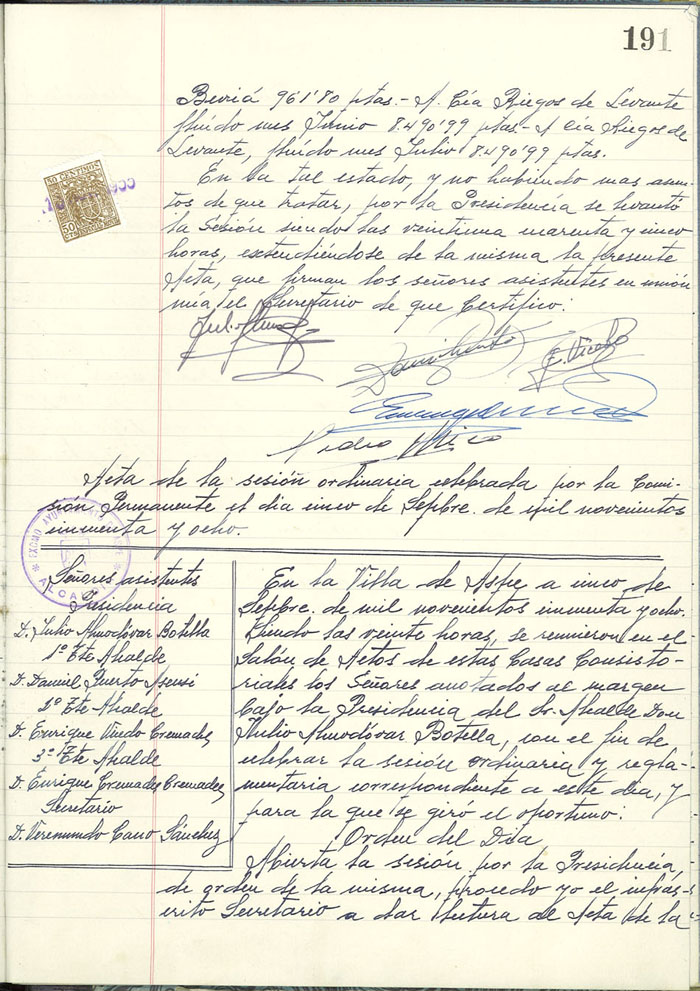 191
Beviá 961'80 ptas.- A. Cía Riegos de Levante
flúido mes Junio 8.490'99 ptas.- A cía Riegos de
Levante, flúido mes Julio 8.490'99 ptas.
En la tal estado, y no habiendo mas asun-
tos de que tratar, por la Presidencia se levantó
la Sesión siendo las veintiuna cuarenta y cinco
horas, extendiéndose de la misma la presente
Acta, que firman los señores asistentes en unión
mía el Secretario de que Certifico:
50 CENTIMOS
50
Acta de la sesión ordinaria celebrada por la Comi-
sión Permanente el dia cinco de Sepbre. de mil novecientos
cincuenta y ocho.
EXCMO. AYU
ALCAL
Señores asistentes
Presidencia
D. Julio Almodóvar Botella
1º Ete Alcalde
D. Daniel Puerto Asensi
2º Ete Alcalde
D. Enrique Vicedo Cremades
3º Ete Alcalde
D. Enrique Cremades Cremades
Secretario
D. Veremundo Cano Sánchez
En la Villa de Aspe a cinco de
Sepbre. de mil novecientos cincuenta y ocho.
Siendo las veinte horas, se reunieron en el
Salón de Actos de estas Casas Consisto-
riales los Señores anotados al margen
bajo la Presidencia del Sr. Alcalde Don
Julio Almodóvar Botella, con el fin de
celebrar la sesión ordinaria y regla-
mentaria correspondiente a este dia, y
para la que se giró el oportuno:
Orden del Dia
Abierta la sesión por la Presidencia,
de orden de la misma, procedo yo el infras-
crito Secretario a dar lectura al Acta de la